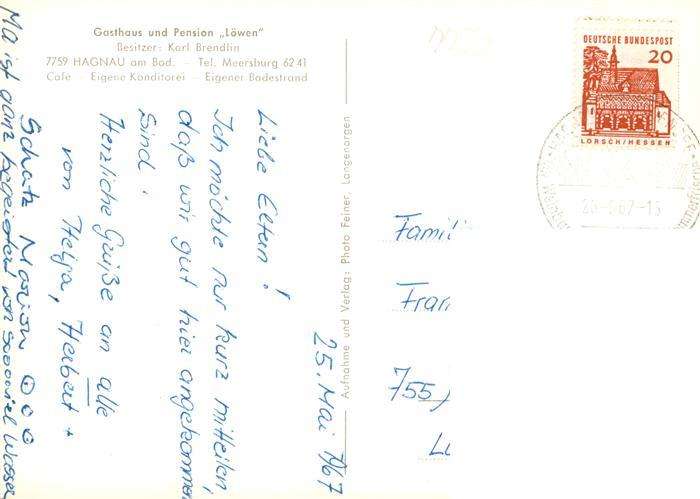 Gasthaus und Pension „Löwen"
Besitzer: Karl Brendlin
7759 HAGNAU am Bod. - Tel. Meersburg 62 41
Cafe Eigene Konditorei - Eigener Badestrand
DEUTSCHE BUNDESPOST
20
LORSCH/HESSEN
67-15
25. Mai 1967
Liebe Eltern!
Ich möchte nur kurz mitteilen,
daß wir gut hier angekommen
sind.
Herzliche Grüße an alle
von Helga, Herbert +
Schatz Marion
Ma ist ganz begeistert von sooooviel Wasser
Aufnahme und Verlag: Photo Feiner, Langenargen
Famil
Fran
755